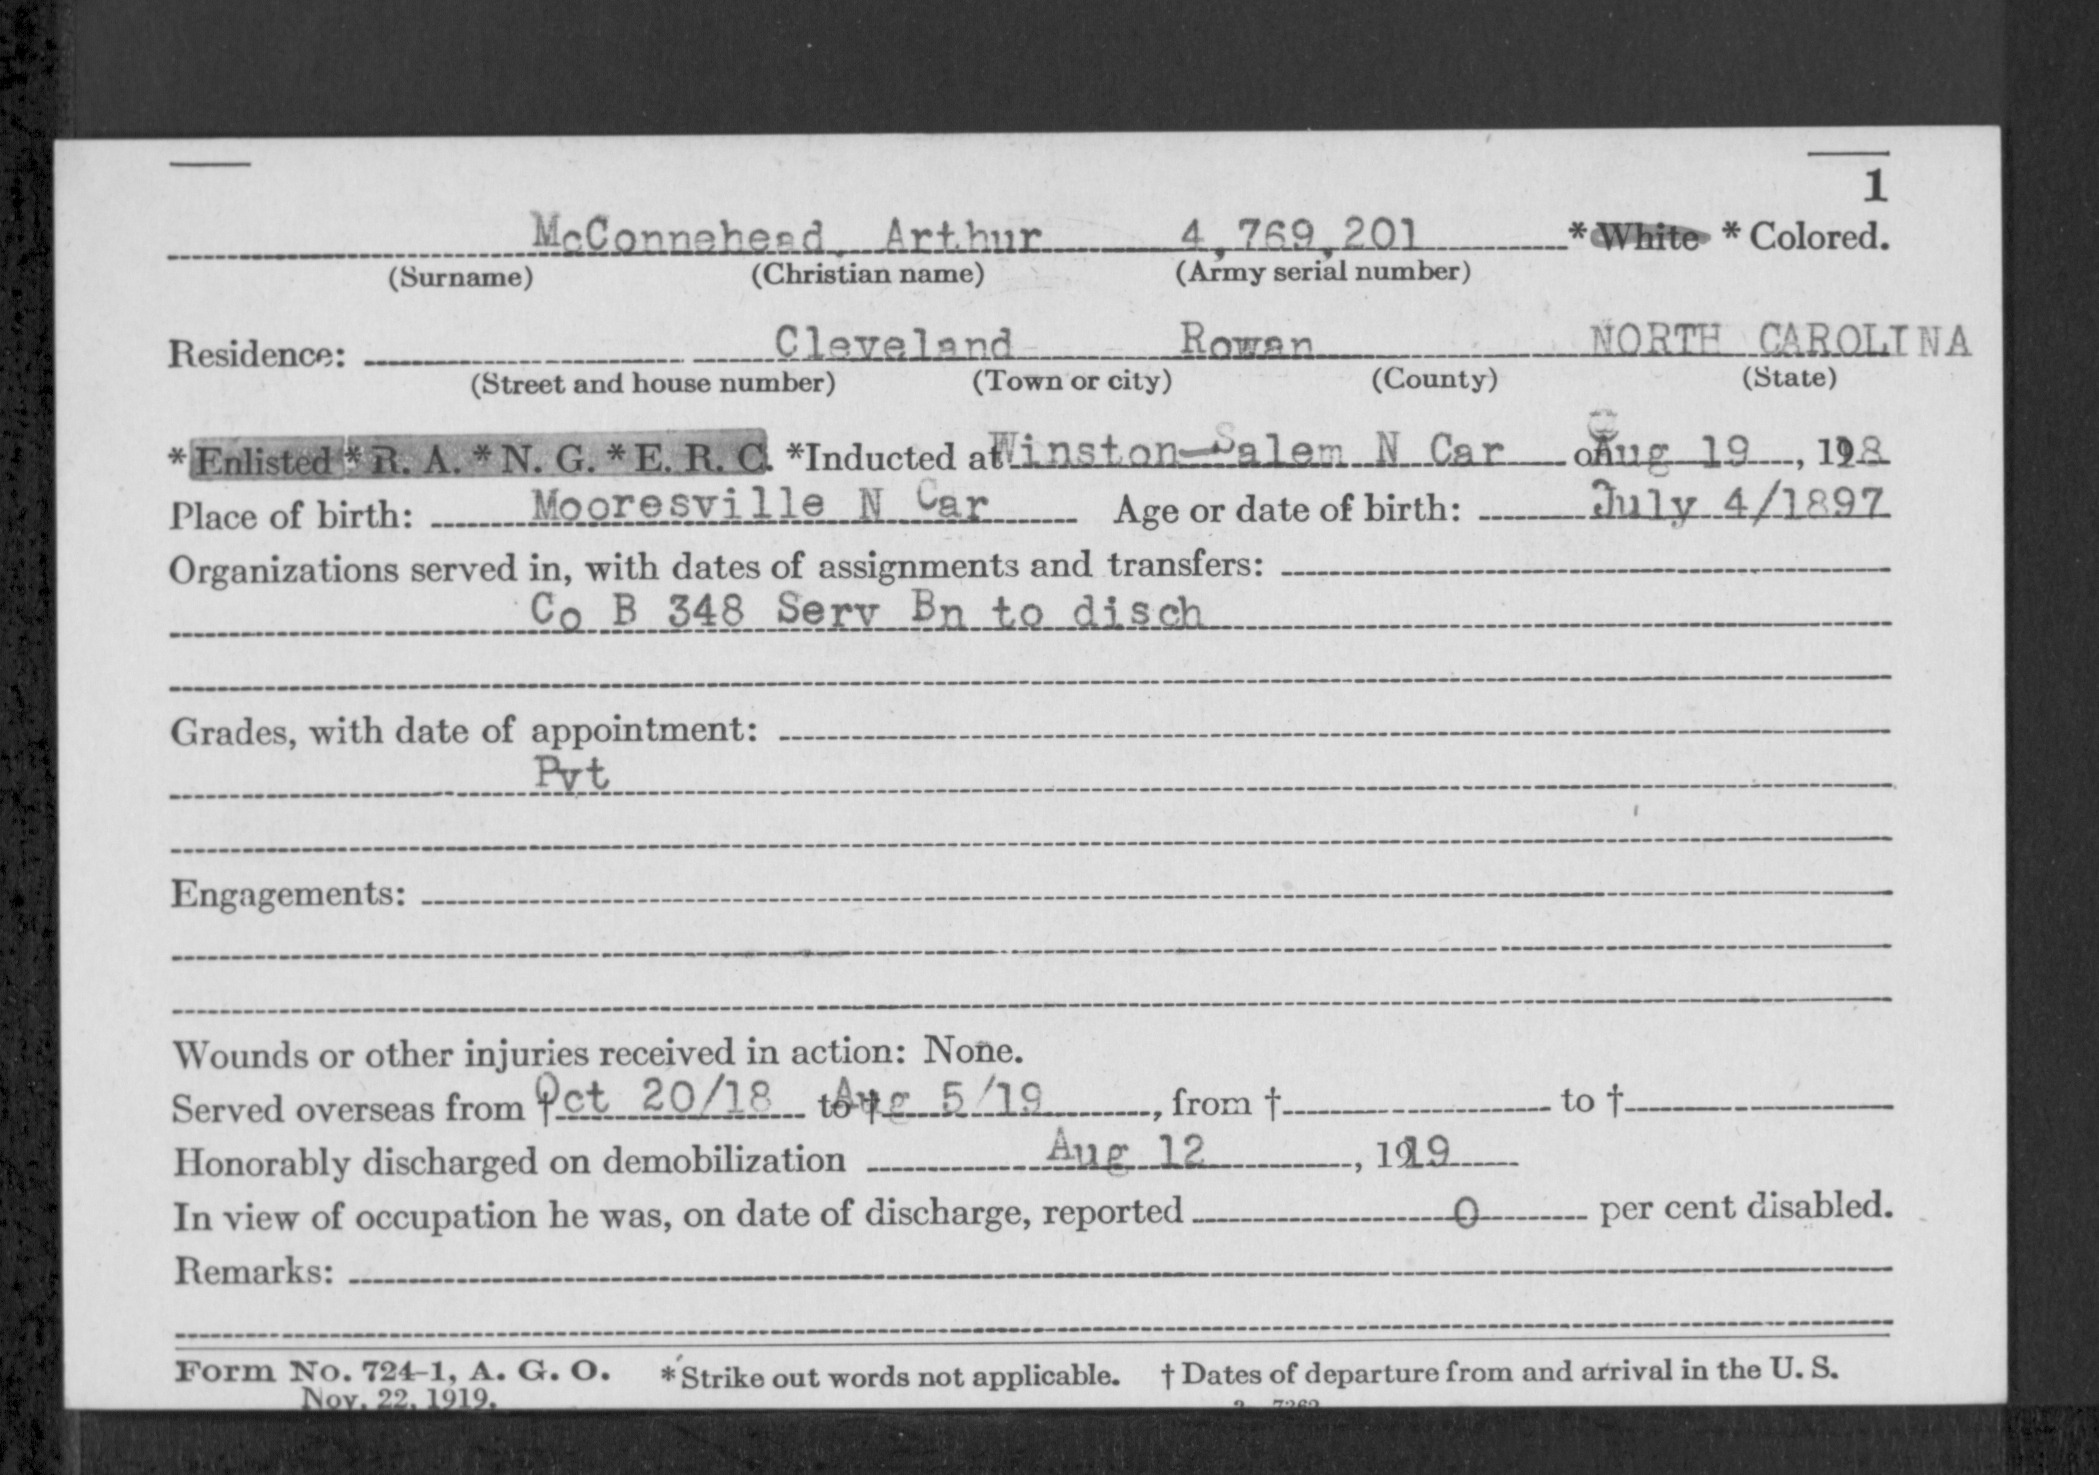 1
McConnehead, Arthur 4,769,201 * White * Colored.
(Surname) (Christian name) (Army serial number)
Residence: Cleveland Rowan NORTH CAROLINA
(Street and house number) (Town or city) (County) (State)
* Enlisted * R. A. * N. G. * E. R. C. *Inducted at Winston-Salem N Car on Aug 19, 1918
Place of birth: Mooresville N Car Age or date of birth: July 4/1897
Organizations served in, with dates of assignments and transfers:
Co B 348 Serv Bn to disch
Grades, with date of appointment:
Pvt
Engagements:
Wounds or other injuries received in action: None.
Served overseas from † Oct 20/18 to † Aug 5/19, from † to †
Honorably discharged on demobilization Aug 12, 1919
In view of occupation he was, on date of discharge, reported 0 per cent disabled.
Remarks:
Form No. 724-1, A. G. O. *Strike out words not applicable. † Dates of departure from and arrival in the U. S.
Nov. 22, 1919.